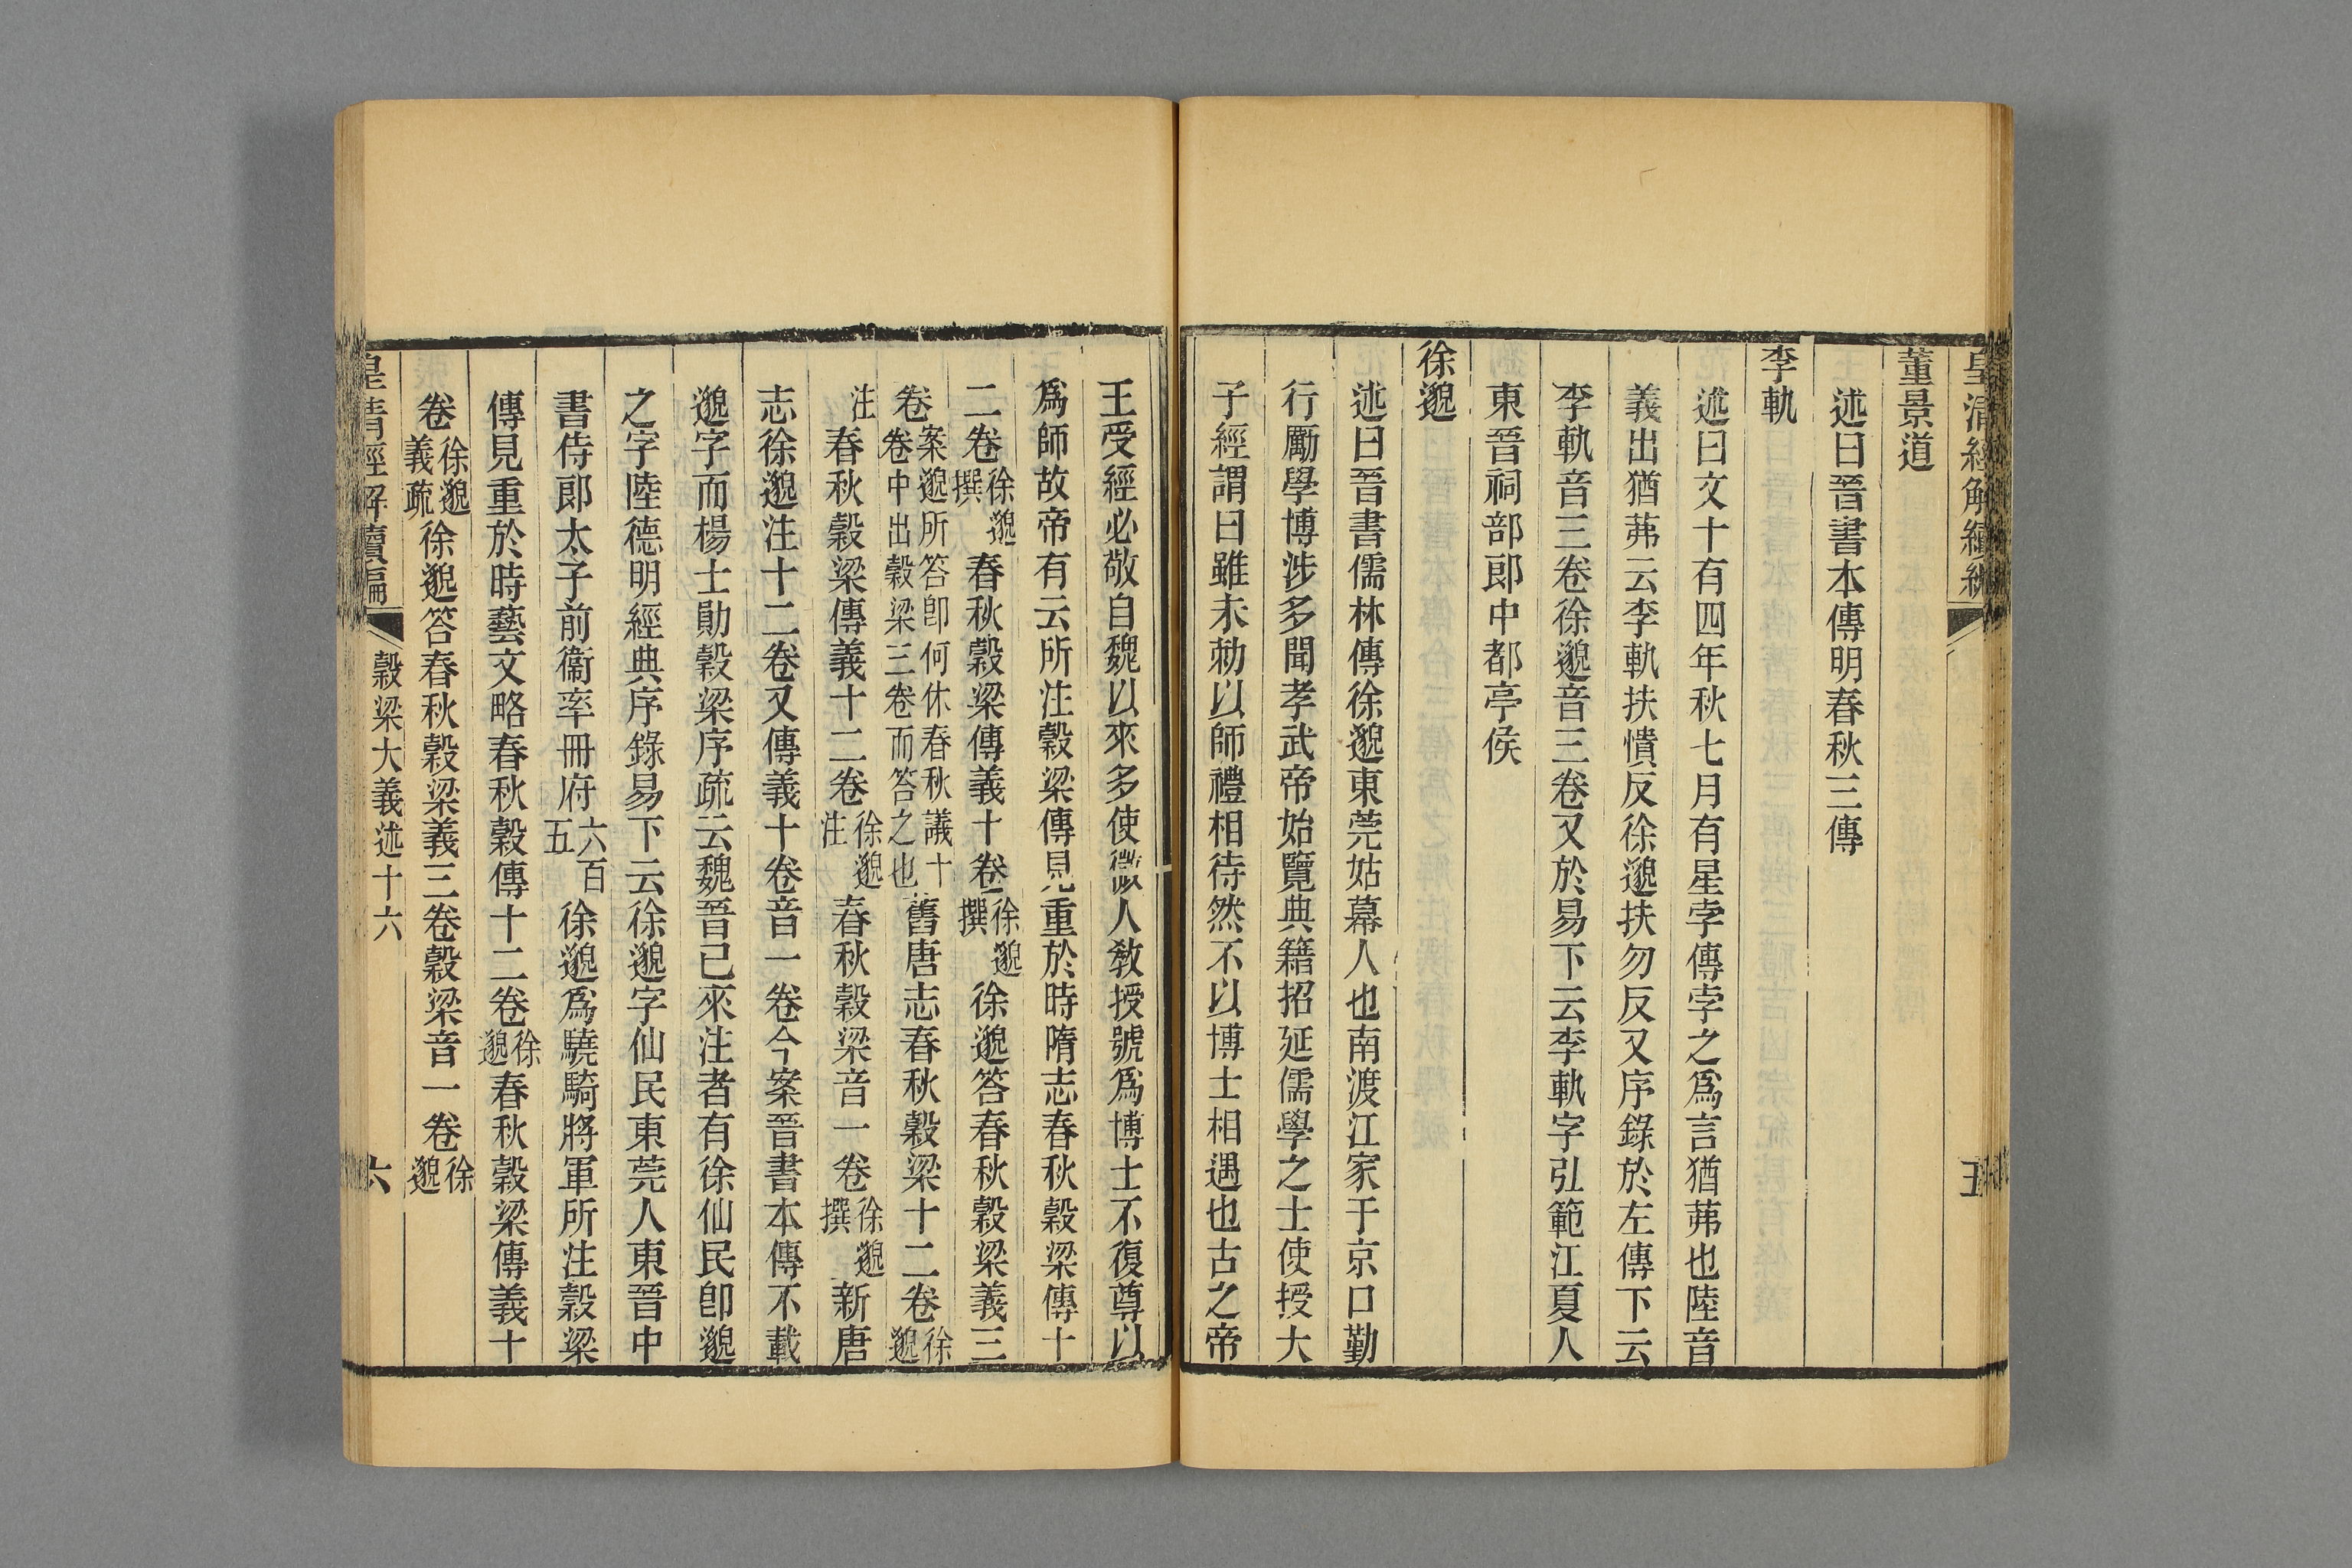 皇清經解續編
五
董景道
述曰晉書本傳明春秋三傳
李軌
述曰文十有四年秋七月有星孛傳孛之爲言猶茀也陸音
義出猶茀云李軌扶憒反徐邈扶勿反又序錄於左傳下云
李軌音三卷徐邈音三卷又於易下云李軌字弘範江夏人
東晉祠部郎中都亭侯
徐邈
述曰晉書儒林傳徐邈東莞姑幕人也南渡江家于京口勤
行勵學博涉多聞孝武帝始覽典籍招延儒學之士使授大
子經謂曰雖未勅以師禮相待然不以博士相遇也古之帝
王受經必敬自魏以來多使微人敎授號爲博士不復尊以
爲師故帝有云所注穀梁傳見重於時隋志春秋穀梁傳十
二卷徐邈撰春秋穀梁傳義十卷徐邈撰徐邈答春秋穀梁義三
卷案邈所答卽何休春秋議十卷中出穀梁三卷而答之也舊唐志春秋穀梁十二卷徐邈
注春秋穀梁傳義十二卷徐邈注春秋穀梁音一卷徐邈撰新唐
志徐邈注十二卷又傳義十卷音一卷今案晉書本傳不載
邈字而楊士勛穀梁序疏云魏晉已來注者有徐仙民卽邈
之字陸德明經典序錄易下云徐邈字仙民東莞人東晉中
書侍郎太子前衞率冊府六百五徐邈爲驍騎將軍所注穀梁
傳見重於時藝文略春秋穀傳十二卷徐邈春秋穀梁傳義十
卷徐邈義疏徐邈答春秋穀梁義三卷穀梁音一卷徐邈
皇清經解續編
穀梁大義述十六
六